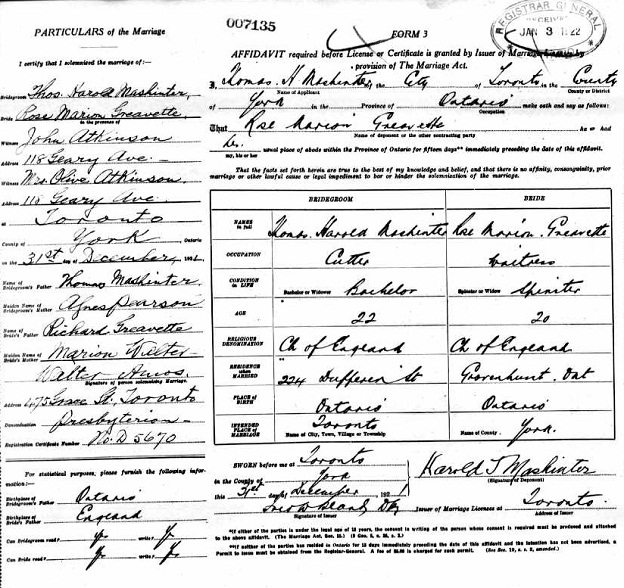 PARTICULARS of the Marriage
I certify that I solemnized the marriage of:
Bridegroom Thos. Harold Mashinter,
Bride Rose Marion Greavette
in the presence of
Witness John Atkinson
Address 118 Geary Ave.
Witness Mrs. Olive Atkinson.
Address 118 Geary Ave
at Toronto
County of York, Ontario
on the 31st day of December, 192
Name of Bridegroom's Father Thomas Mashinter.
Maiden Name of Bridegroom's Mother Agnes Pearson
Name of Bride's Father Richard Greavette
Maiden Name of Bride's Mother Marion Wilter
Walter Amos.
Signature of person solemnizing Marriage.
Address 475 Grace St. Toronto
Denomination Presbyterian
Registration Certificate Number No. D 5670
For statistical purposes, please furnish the following information:—
Birthplace of Bridegroom's Father Ontario
Birthplace of Bride's Father England
Can Bridegroom read? yes write? yes
Can Bride read? yes write? yes
007135
FORM 3
REGISTRAR GENERAL
RECEIVED
JAN 3 1922
AFFIDAVIT required before License or Certificate is granted by Issuer of Marriage Licenses by
provision of The Marriage Act.
I, Thomas H Mashinter of the City of Toronto County
Name of Applicant County or District
of York in the Province of Ontario make oath and say as follows:
Occupation
That Rose Marion Greavette As or And
Name of deponent or the other contracting party
her usual place of abode within the Province of Ontario for fifteen days** immediately preceding the date of this affidavit.
my, his or her
That the facts set forth herein are true to the best of my knowledge and belief, and that there is no affinity, consanguinity, prior
marriage or other lawful cause or legal impediment to bar or hinder the solemnization of the marriage.
BRIDEGROOM BRIDE
NAMES in full Thomas. Harold Mashinter Rose Marion. Greavette
OCCUPATION Cutter Waitress
CONDITION in LIFE Bachelor or Widower Bachelor Spinster or Widow Spinster
AGE 22 20
RELIGIOUS DENOMINATION Ch of England Ch of England
RESIDENCE when MARRIED 224 Dufferin St Gravenhurst. Ont
PLACE OF BIRTH Ontario Ontario
INTENDED PLACE of MARRIAGE Toronto York.
Name of City, Town, Village or Township Name of County
SWORN before me at Toronto
in the County of York
this 31st day of December 1921
Signature of Issuer
Harold T Mashinter
(Signature of Deponent)
Issuer of Marriage Licences at Toronto.
*If either of the parties is under the legal age of 18 years, the consent in writing of the person whose consent is required must be produced and attached
to the above affidavit. (The Marriage Act, Sec. 15.)
**If neither of the parties has resided in Ontario for 15 days immediately preceding the date of this affidavit and the intention has not been advertised, a
Permit to issue must be obtained from the Registrar-General. A fee of $5.00 is charged for each permit.